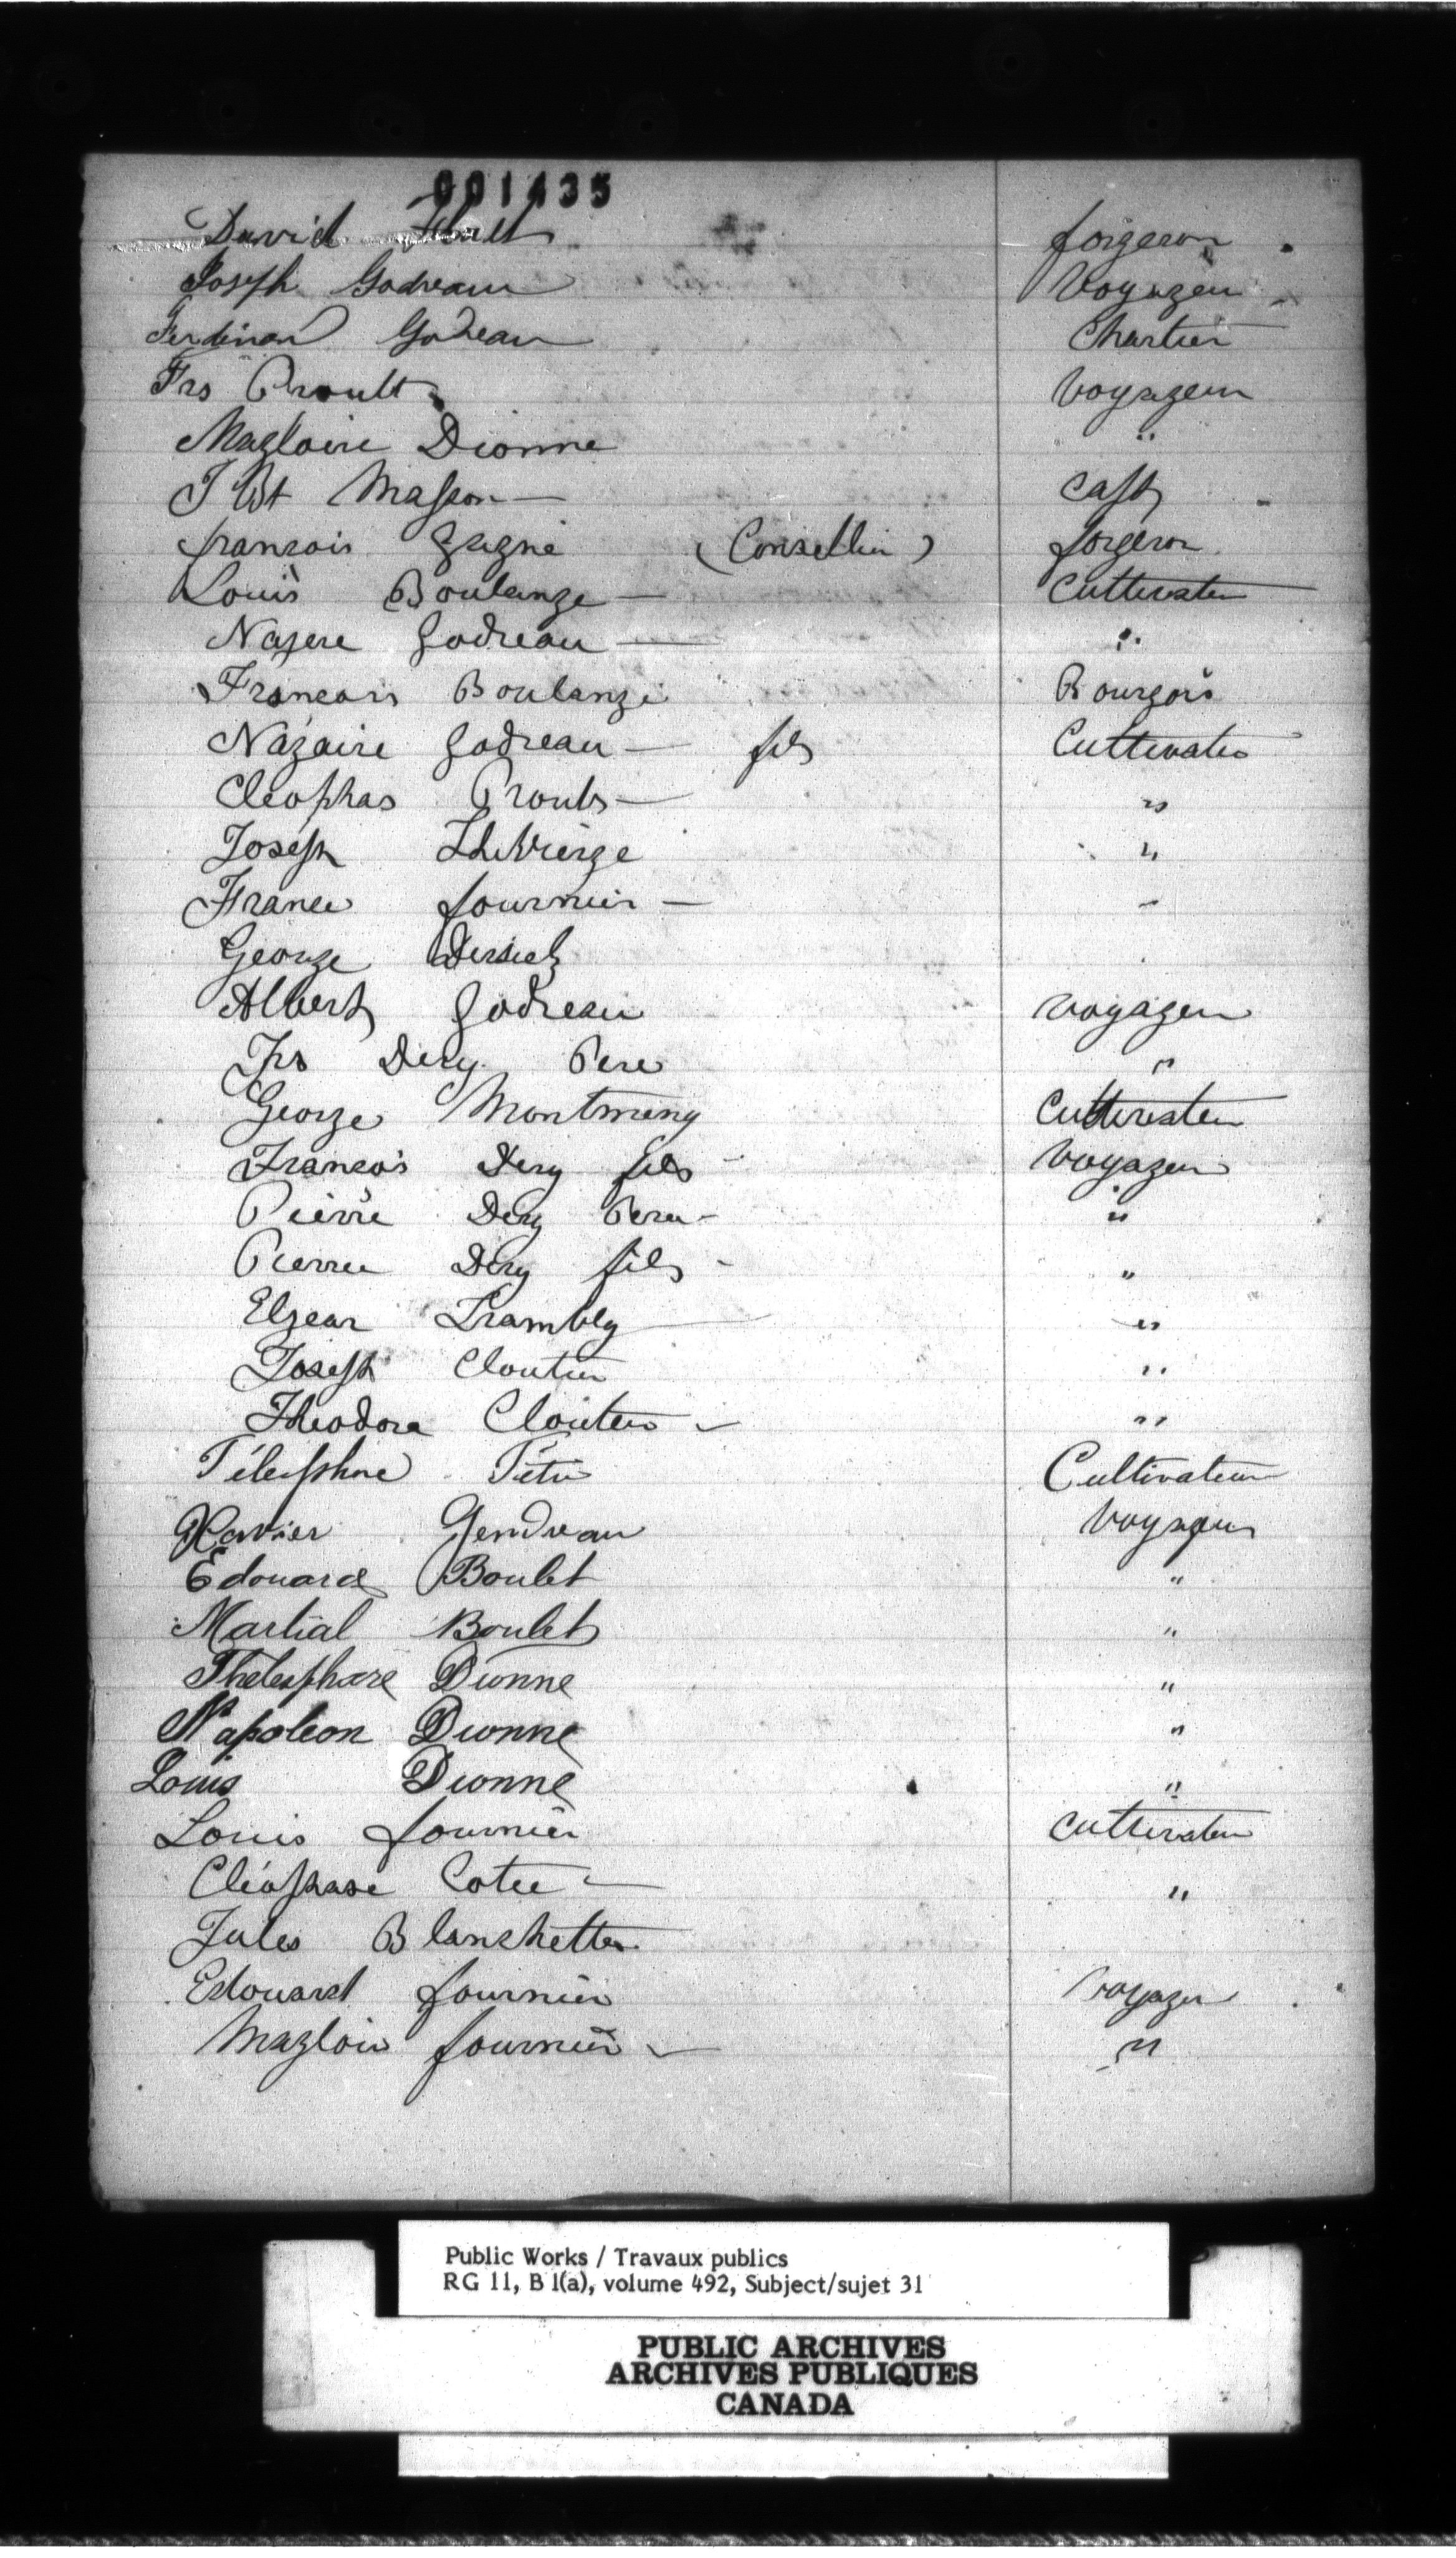 001435
David forgeron
Joseph Godreau Voyageur
Ferdinan Godreau Chartier
Frs Proult Voyageur
Magloire Dionne "
J Bt Masson —
francois Gagné (Conseller) forgeron
Louis Boulange — Cultivateur
Nasere Godreau — "
Francois Boulange Bourgois
Nazaire Godreau — fils Cultivateur
Cleophas Proults — "
Joseph Thivierge "
France fournier — "
George
Albert Godreau voyageur
Frs Dery Pere "
George Montmeny Cultivateur
Francois Dery fils - Voyageur
Pierre Dery Pere - "
Pierre Dery fils - "
Elzear Trambly "
Joseph Cloutier "
Theodore Cloutier "
Télesphore Tétu Cultivateur
Xavier Gendreau Voyageur
Edouard Boulet "
Martial Boulet "
Thelesphore Dionne "
Napoleon Dionne "
Louis Dionne "
Louis fournier cultivateur
Cléophase Cotee — "
Jules Blanchette
Edouard fournier voyager
Magloir fournier "
Public Works / Travaux publics
RG 11, B 1(a), volume 492, Subject/sujet 31
PUBLIC ARCHIVES
ARCHIVES PUBLIQUES
CANADA